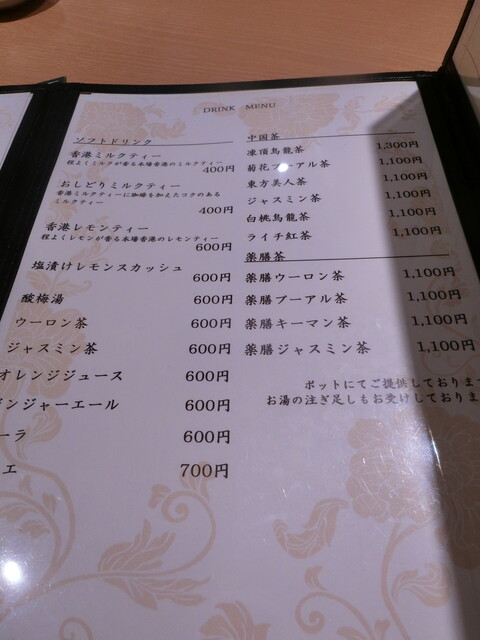 DRINK MENU
ソフトドリンク
香港ミルクティー
程よくミルクが香る本場香港のミルクティー
400円
おしどりミルクティー
香港ミルクティーに珈琲を加えたコクのある
ミルクティー
400円
香港レモンティー
程よくレモンが香る本場香港のレモンティー
600円
塩漬けレモンスカッシュ 600円
酸梅湯 600円
ウーロン茶 600円
ジャスミン茶 600円
オレンジジュース 600円
ジンジャーエール 600円
ーラ 600円
エ 700円
中国茶
凍頂烏龍茶 1,300円
菊花プーアル茶 1,100円
東方美人茶 1,100円
ジャスミン茶 1,100円
白桃烏龍茶 1,100円
ライチ紅茶 1,100円
薬膳茶
薬膳ウーロン茶 1,100円
薬膳プーアル茶 1,100円
薬膳キーマン茶 1,100円
薬膳ジャスミン茶 1,100円
ポットにてご提供しておりま
お湯の注ぎ足しもお受けしておりま